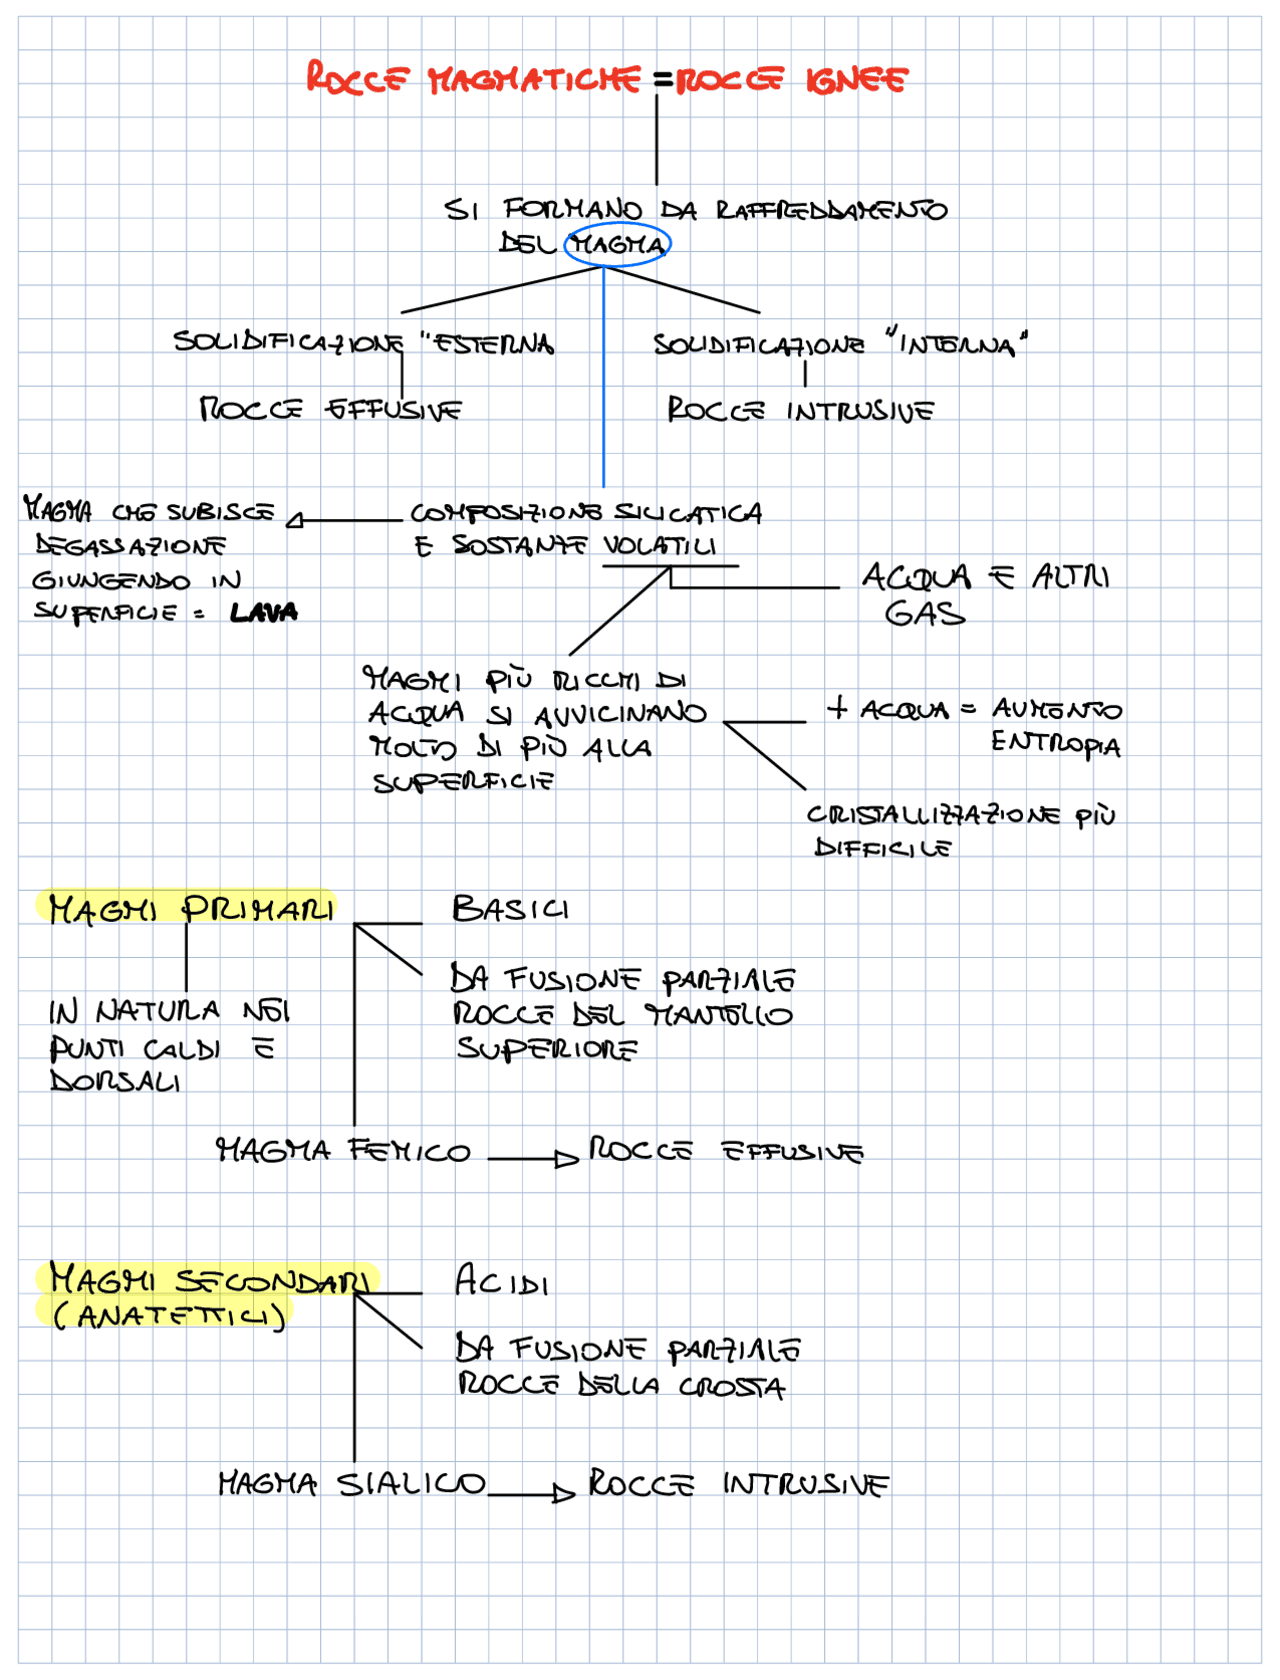 ROCCE MAGMATICHE = ROCCE IGNEE
SI FORMANO DA RAFFREDDAMENTO
DEL MAGMA
SOLIDIFICAZIONE "ESTERNA
SOLIDIFICAZIONE "INTERNA"
ROCCE EFFUSIVE
ROCCE INTRUSIVE
MAGMA CHE SUBISCE
DEGASSAZIONE
GIUNGENDO IN
SUPERFICIE = LAVA
COMPOSIZIONE SILICATICA
E SOSTANZE VOLATILI
ACQUA E ALTRI
GAS
MAGMI PIÙ RICCHI DI
ACQUA SI AVVICINANO
MOLTO DI PIÙ ALLA
SUPERFICIE
+ ACQUA = AUMENTO
ENTROPIA
CRISTALLIZZAZIONE PIÙ
DIFFICILE
MAGMI PRIMARI
BASICI
DA FUSIONE PARZIALE
ROCCE DEL MANTELLO
SUPERIORE
IN NATURA NEI
PUNTI CALDI E
DORSALI
MAGMA FEMICO
ROCCE EFFUSIVE
MAGMI SECONDARI
(ANATETTICI)
ACIDI
DA FUSIONE PARZIALE
ROCCE DELLA CROSTA
MAGMA SIALICO
ROCCE INTRUSIVE